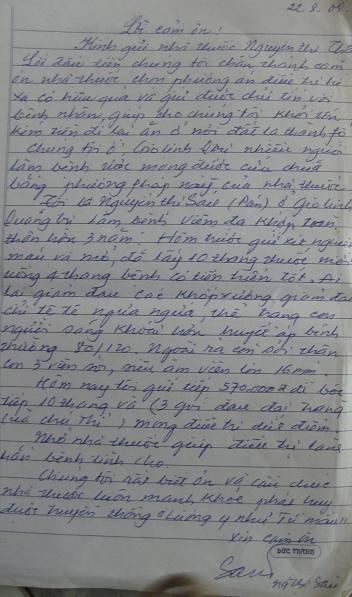 22.8.08
Lời cảm ơn!
Kính gửi nhà thuốc Nguyễn Thị
Lời đầu tiên chúng tôi chân thành cảm
ơn nhà thuốc chọn phương án điều trị từ
xa có hiệu quả và giữ được chữ tín với
bệnh nhân, giúp cho chúng tôi khỏi tốn
kém tiền đi lại ăn ở nơi đất là thành fố
Chúng tôi ở Gio Linh nhiều người
lâm bệnh ước mong được cứu chữa
bằng phương pháp này của nhà thuốc
Tôi là Nguyễn Thị Sait (Pán) ở Gio Linh
Quảng Trị lâm bệnh viêm đa khớp toàn
thân hơn 3 năm. Hôm trước gửi xét nghiệm
máu và mỡ, đã lấy 10 thang thuốc mới
uống 4 thang bệnh có tiến triển tốt.
lại giảm đau các khớp xương giảm đau
chỉ tê tê ngứa ngứa, thể trạng con
người sảng khoái hơn huyết áp bình
thường 80/120. Ngoài ra còn sỏi thận
còn 3 viên sỏi, nếu âm viên lớn 16mm.
Hôm nay tôi gửi tiền 570.000đ để bốc
tiếp 10 thang và (3 gói đau đại tràng
của chú Thi) mong điều trị dứt điểm
Nhờ nhà thuốc giúp điều trị lành
hẳn bệnh tình cho.
Chúng tôi rất biết ơn và cầu chúc
nhà thuốc luôn mạnh khỏe phát huy
được truyền thống "Lương y như Từ mẫu"
Xin cảm ơn